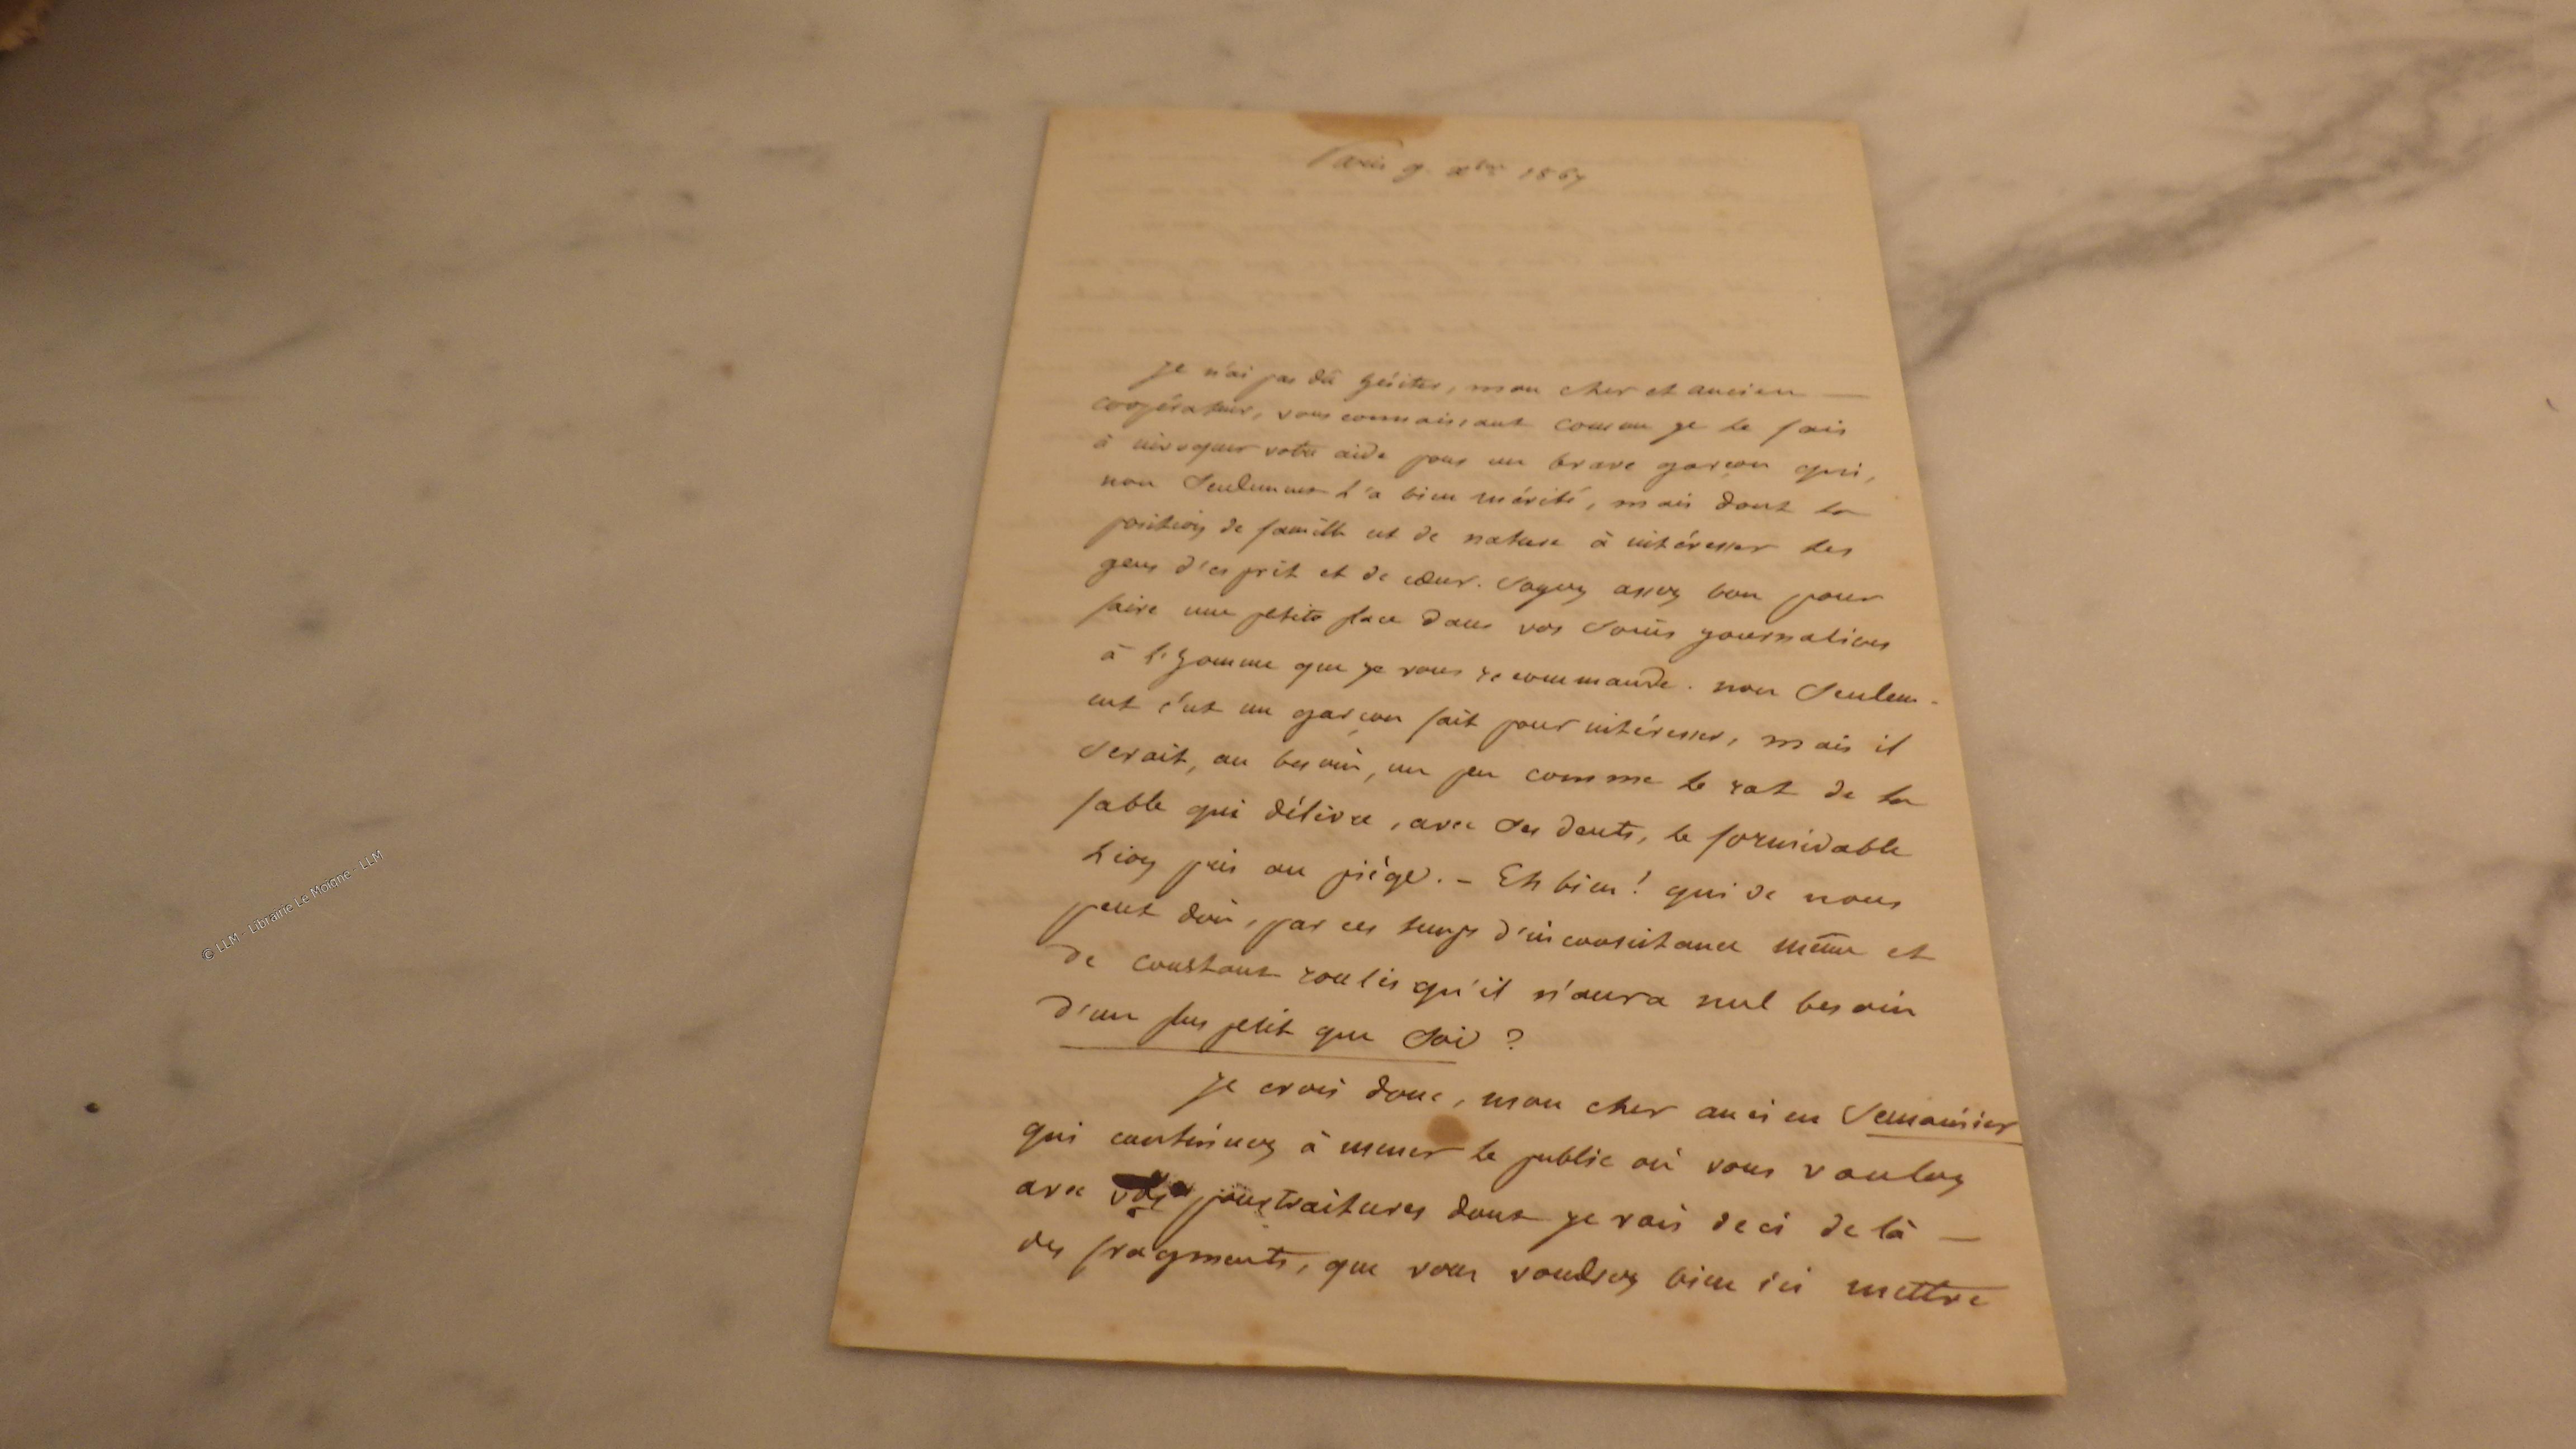 Paris 9. xbre 1867
Je n'ai pas dû hésiter, mon cher et ancien —
coopérateur, vous connaissant comme je le fais
à invoquer votre aide pour un brave garçon qui,
non seulement l'a bien mérité, mais dont la
position de famille est de nature à intéresser les
gens d'esprit et de cœur. Soyez assez bon pour
faire une petite place dans vos soucis journaliers
à l'homme que je vous recommande. non seulem-
ent c'est un garçon fait pour intéresser, mais il
serait, au besoin, un peu comme le rat de la
fable qui délivre, avec ses dents, le formidable
Lion pris au piège. – Eh bien! qui de nous
peut dire, par ces temps d'inconsistance même et
de constant roulis qu'il n'aura nul besoin
d'un plus petit que soi ?
Je crois donc, mon cher ancien Semainier
qui continuez à mener le public où vous voulez
avec vos pourtraitures dont je vois deci de là —
des fragments, que vous voudrez bien ici mettre
© LLM - Librairie Le Moigne - LLM